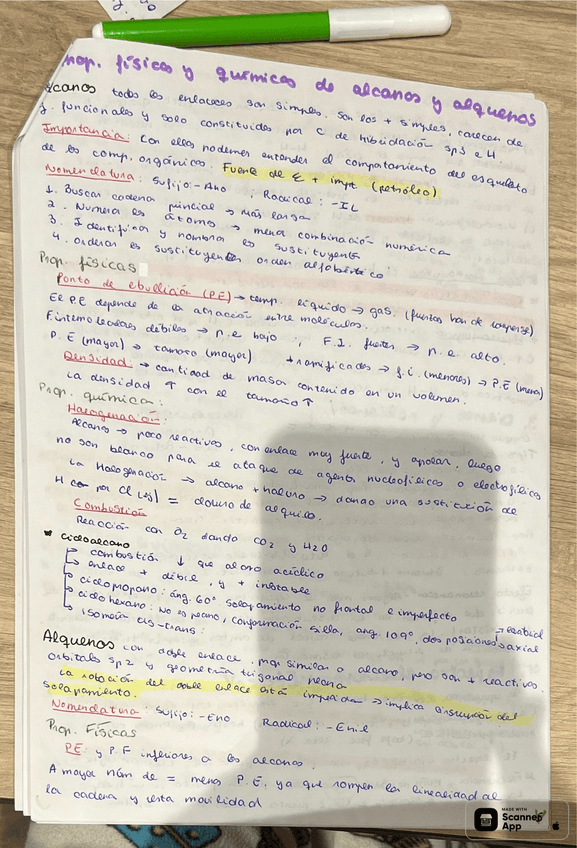 Prop. físicas y químicas de alcanos y alquenos
Alcanos todos los enlaces son simples. son los + simples, carecen de
g. funcionales y solo constituidos por C de hibridación sp3 e H
Importancia: Con ellos podemos entender el comportamiento del esqueleto
de los comp. orgánicos. Fuente de E + impt (petróleo)
Nomenclatura: Sufijo - Ano ; Radical: - IL
1. Buscar cadena principal → más larga
2. Numera los átomos → menor combinación numérica
3. Identifica y nombra los sustituyentes
4. ordenar los sustituyentes orden alfabético
Prop. físicas
Punto de ebullición (PE) → temp. líquido → gas. (fuerzas han de romperse)
El P.E depende de la atracción entre moléculas.
F. intermoleculares débiles → p.e. bajo ; F.I. fuertes → p.e. alto.
P.E (mayor) → tamaño (mayor) + ramificados → f.i. (menores) → P.E (menor)
Densidad: → cantidad de masa contenido en un volumen.
La densidad ↑ con el tamaño ↑
Prop. química:
Halogenación:
Alcanos → poco reactivos, con enlace muy fuerte, y apolar, luego
no son blanco para el ataque de agentes nucleofílicos o electrofílicos
La Halogenación → alcano + haluro → dando una sustitución de
H por Cl = cloruro de alquilo.
Combustión
Reacción con O2 dando CO2 y H2O
* cicloalcano
combustión ↓ que alcano acíclico
enlace + débil, y + inestable
ciclopropano: áng. 60° solapamiento no frontal e imperfecto
ciclohexano: no es plano, conformación silla, ang. 109°, dos posiciones → ecuatorial → axial
isomería cis-trans:
Alquenos con doble enlace, muy similar a alcano, pero son + reactivos.
orbitales sp2 y geometría trigonal plana
La rotación del doble enlace está impedida → implica disrupción del
solapamiento.
Nomenclatura: Sufijo: - Eno Radical: - Enil
Prop. Físicas
PE: y P.F inferiores a los alcanos.
A mayor núm de = menos P.E, ya que rompen la linealidad de
la cadena y resta movilidad
MADE WITH
Scanner
App